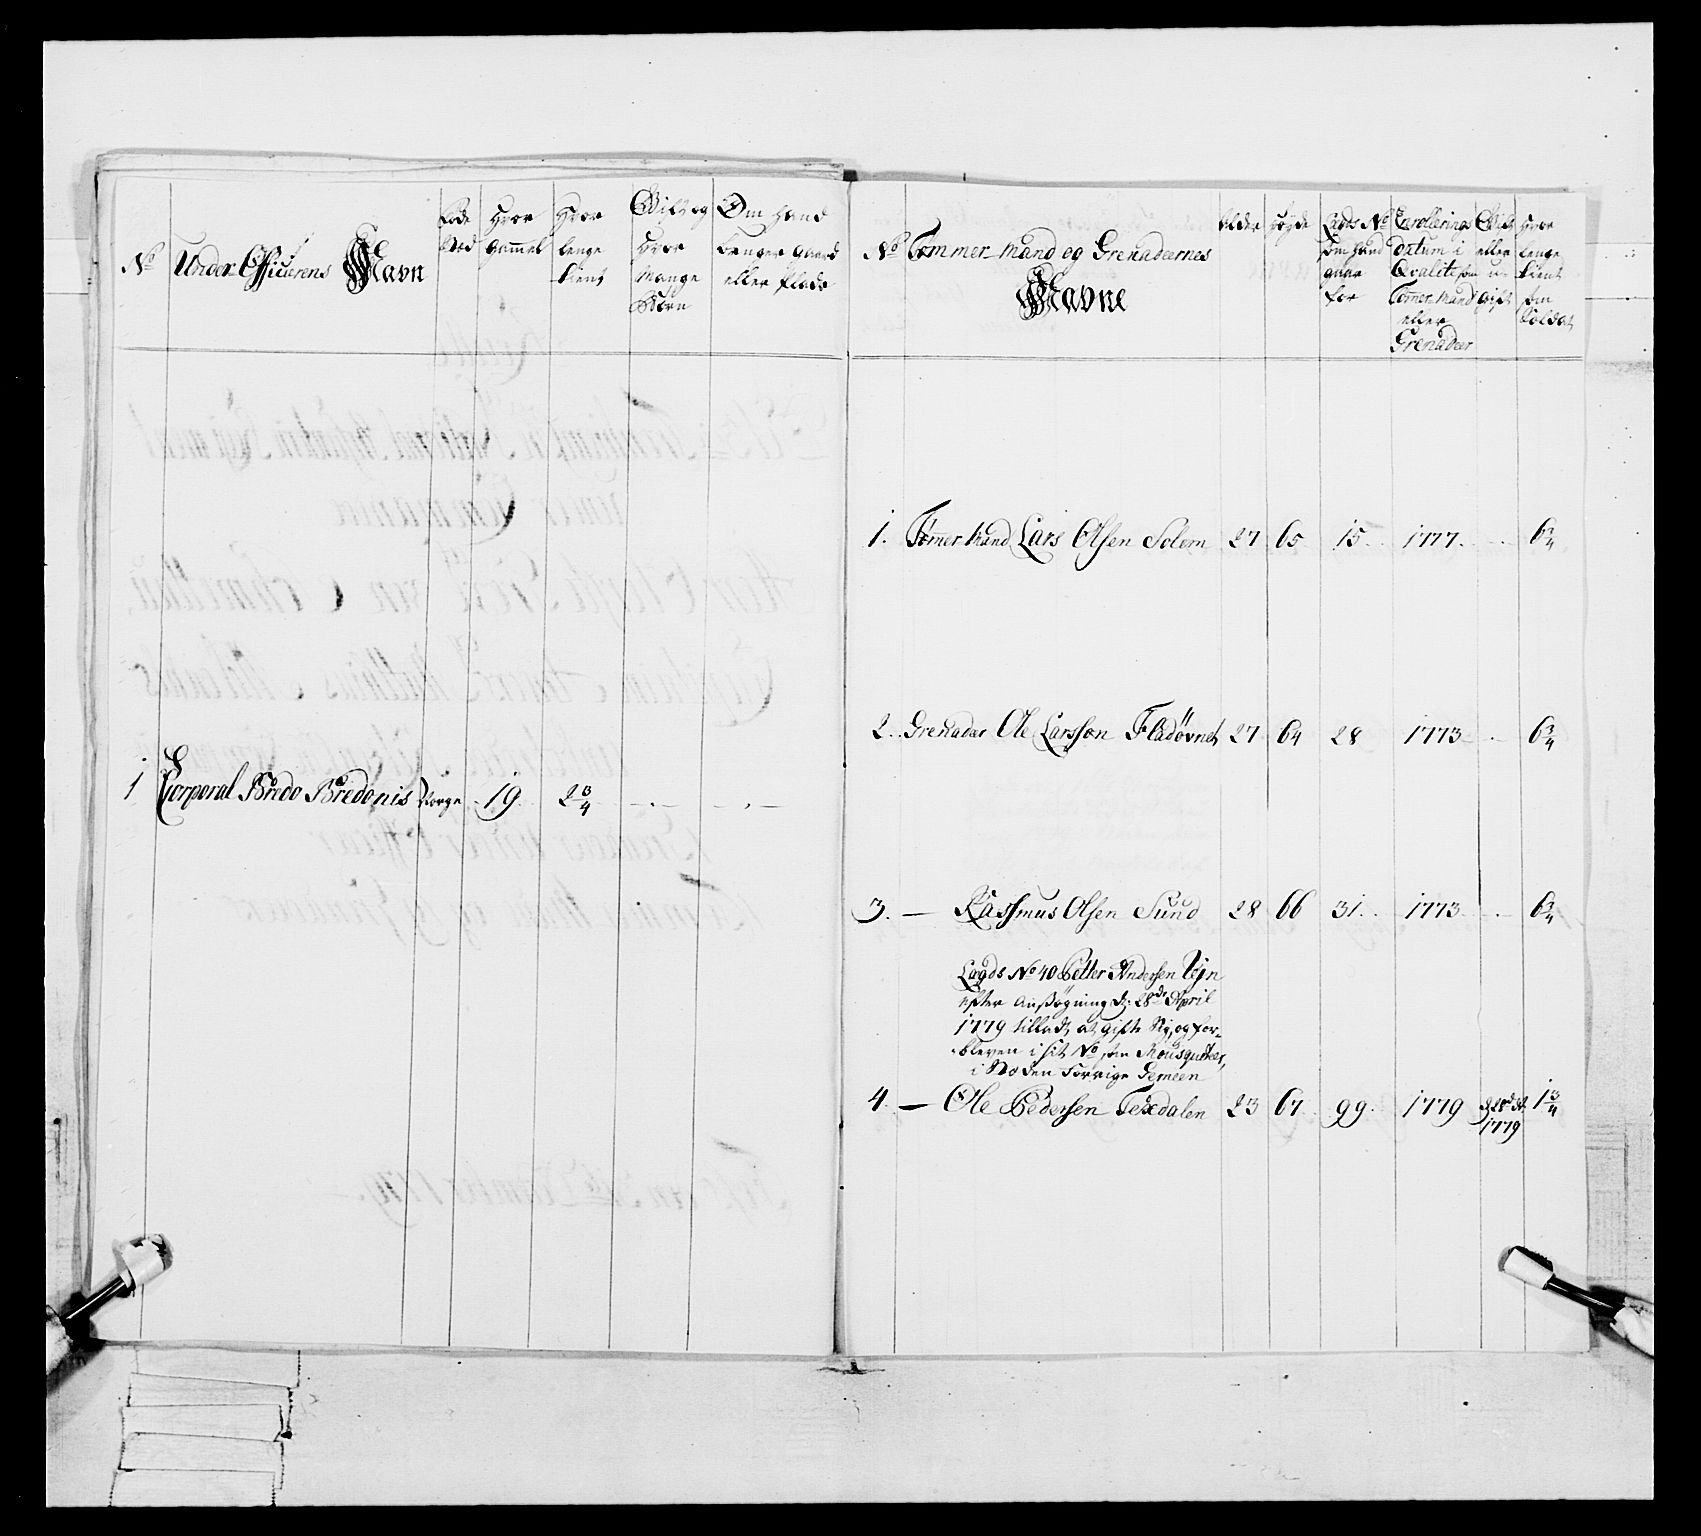 No Under Officerens Navn
Føde
Sted
Hvor
gammel
Hvor
lenge
tient
Gift og
Hvor
mange
Børn
Om Hand
bruger gaard
eller Plads
1 Corporal Bredo Bredonis Norge 19. 2 3/4 -.- -.-
No Tømmer Mand og Grenadeernes
Navne
Alder
Høyde
Lægds No
som Hand
giør
for
Enrollerings
datum i
Qvalite som
Tømer Mand
eller
Grenadeer
Gift
eller
u-
gift
Hvor
lenge
tient
som
Soldat
1. Tømmer Mand Lars Olsen Solem 27 65 15. 1777. . 6 3/4
2. Grenader Ole Larsson Fladövnet 27 64 28 1773 - . 6 3/4
3. — Rassmus Olsen Sund 28 66 31. 1773 - . 6 3/4
Lægds No 40 Petter Andersen
efter Ansøgning d: 28de April
1779 tilladt at gifte sig, og for-
bleven i sit No som Mousqueteer,
i Stæden forrige Gemeen
4. — Ole Pedersen Texdalen 23 67 99. 1779 1 3/4
1779